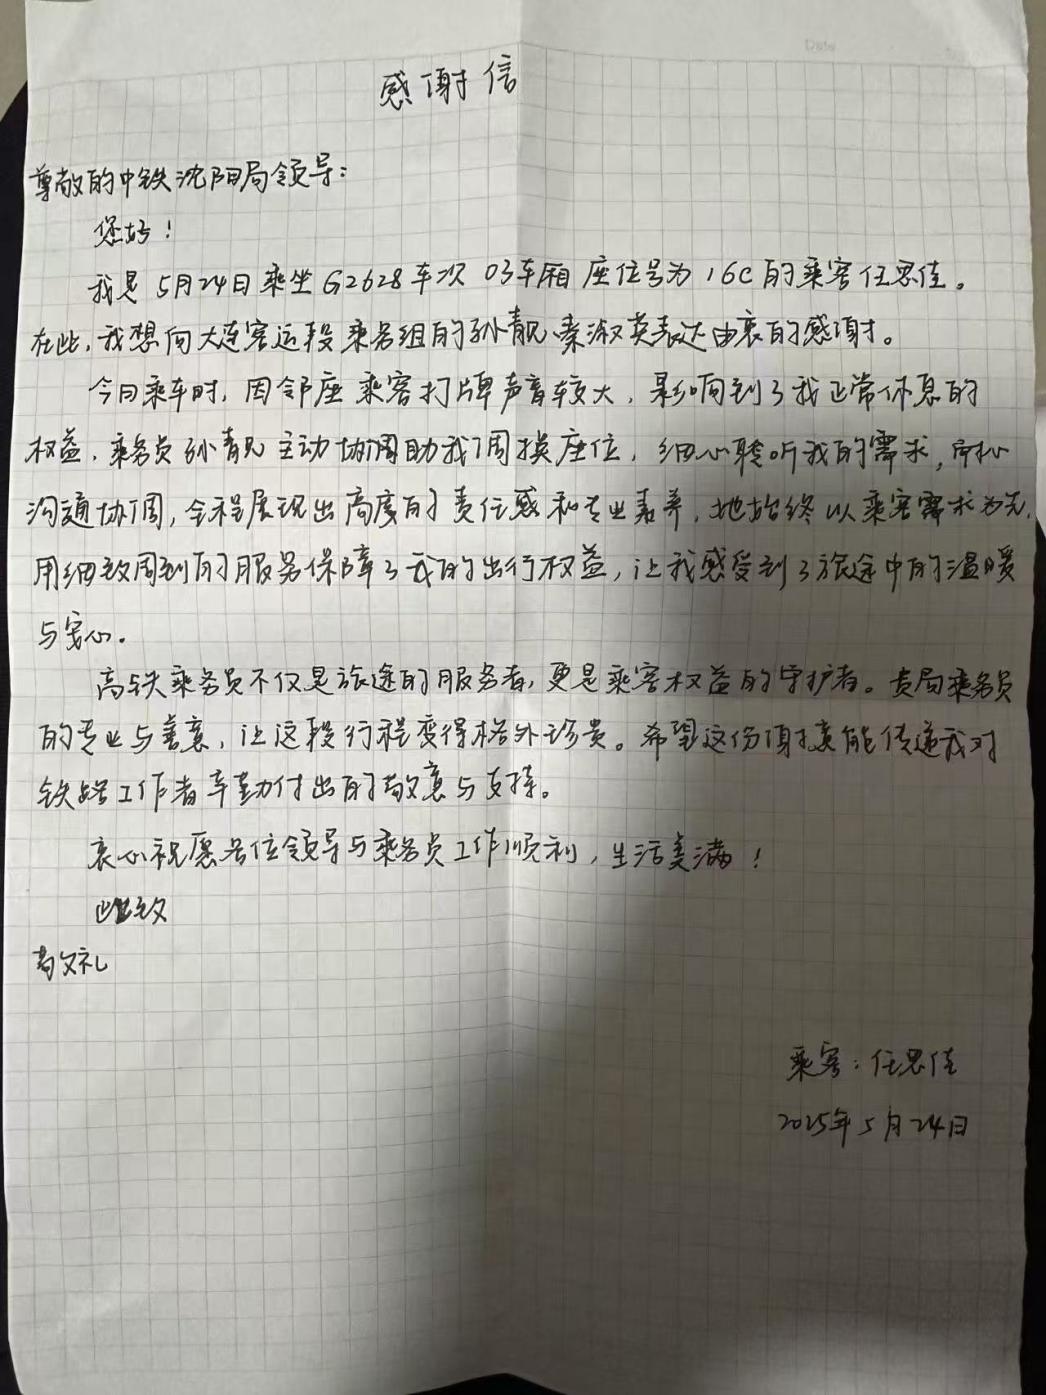 Date
感谢信
尊敬的中铁沈阳局领导：
您好！
我是5月24日乘坐G2628车次 03车厢 座位号为16C的乘客任思佳。
在此，我想向大连客运段乘务组的孙靓、秦淑英表达由衷的感谢。
今日乘车时，因邻座乘客打牌声音较大，影响到了我正常休息的
权益，乘务员孙靓主动协调助我调换座位，细心聆听我的需求，耐心
沟通协调，全程展现出高度的责任感和专业素养，她始终以乘客需求为先，
用细致周到的服务保障了我的出行权益，让我感受到了旅途中的温暖
与安心。
高铁乘务员不仅是旅途的服务者，更是乘客权益的守护者。贵局乘务员
的专业与善意，让这段行程变得格外珍贵。希望这份谢意能传递我对
铁路工作者辛勤付出的敬意与支持。
衷心祝愿各位领导与乘务员工作顺利，生活美满！
此致
敬礼
乘客：任思佳
2025年5月24日